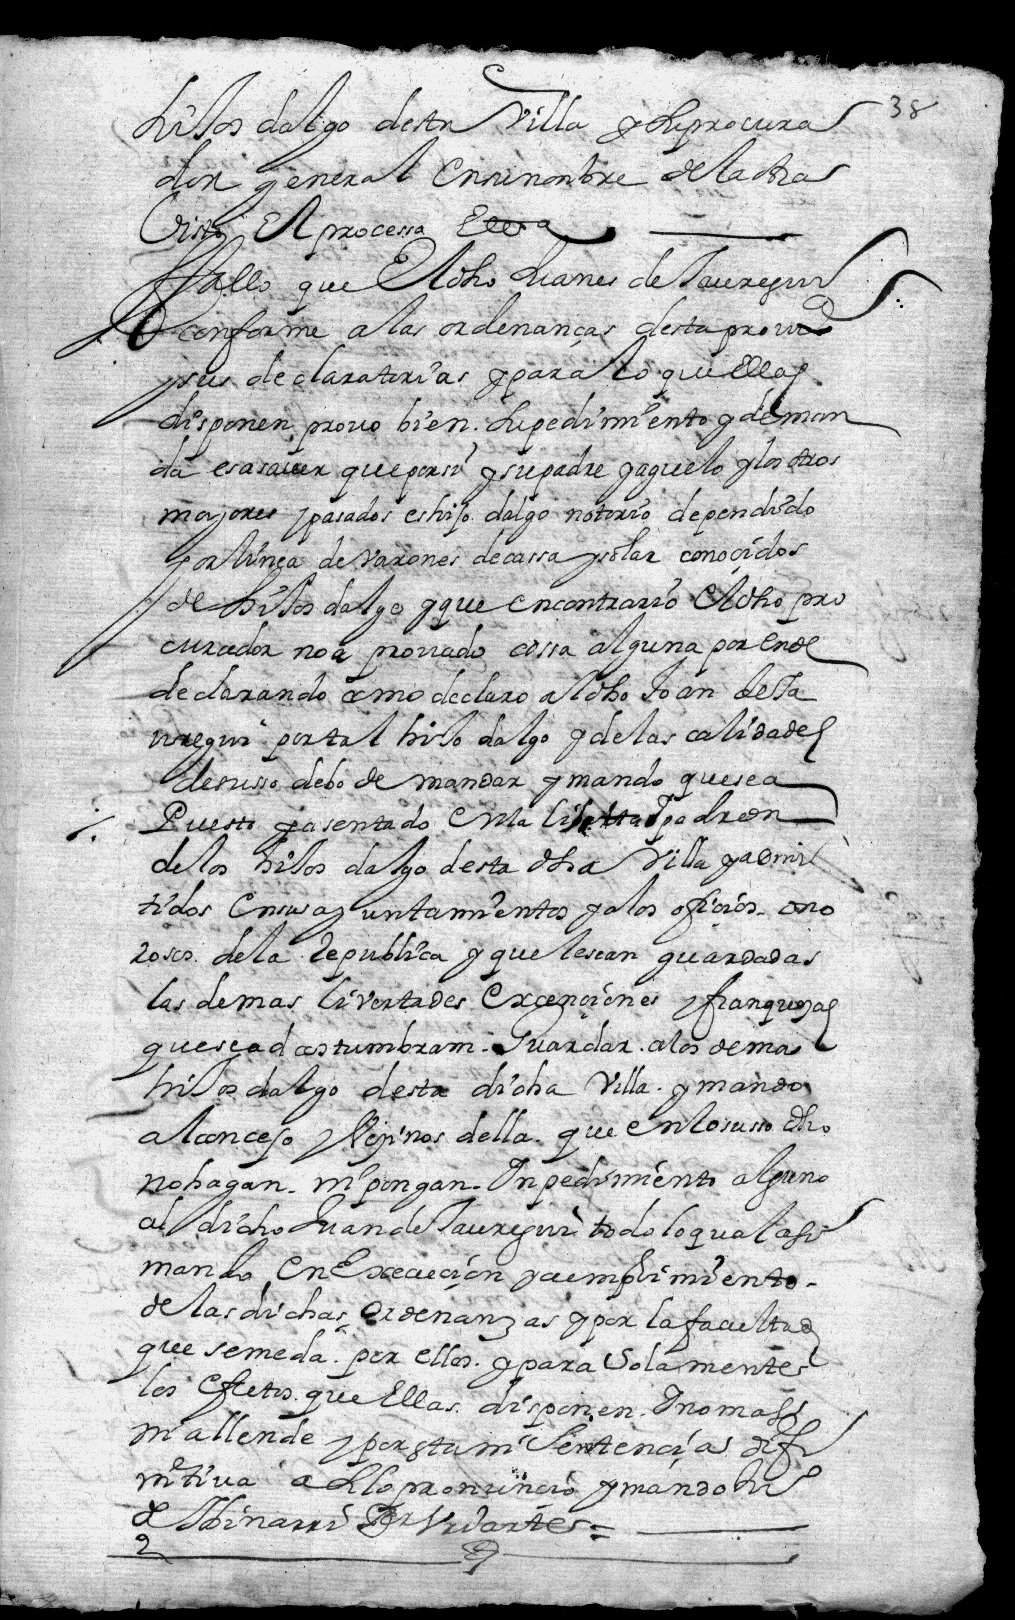 38
hijos dalgo desta Villa y su procura
dor general en su nonbre de la otra
Visto El processo
Fallo que El dho Juanes de Jauregui
conforme a las ordenanças desta prouia
y sus declaratorias y para lo que Ellas
disponen prouo bien su pedimiento y deman
da es a sauer que por si y su padre y aguelo y los otros
mayores pasados es hijo dalgo notorio dependido
por linea de varones de cassa y solar conocidos
de hijos dalgo y que en contrario El dho pro
curador no a prouado cossa alguna por ende
declarando como declaro al dho Joan de Ja
uregui por tal hijo dalgo y de las calidades
de suso debo de mandar y mando que sea
Puesto y asentado en la lista y padron
de los hijos dalgo desta dha Villa y admi
tidos en sus ayuntamientos y a los oficios ono
rosos de la Republica y que le sean guardadas
las demas livertades Excenciones y franquezas
que se acostumbram Guardar a los demas
hijos dalgo desta dicha Villa y mando
al concejo y Vezinos della que en lo suso dho
no hagan ni pongan Inpedimiento alguno
al dicho Juan de Jauregui todo lo qual assi
mando en Execucion y cumplimiento
de las dichas Ordenanzas y por la facultad
que se me da por ellas y para solamente
los efetos que Ellas disponen y no mas
ni allende y por esta mi Sentencia difi
nitiua asi lo pronuncio y mando